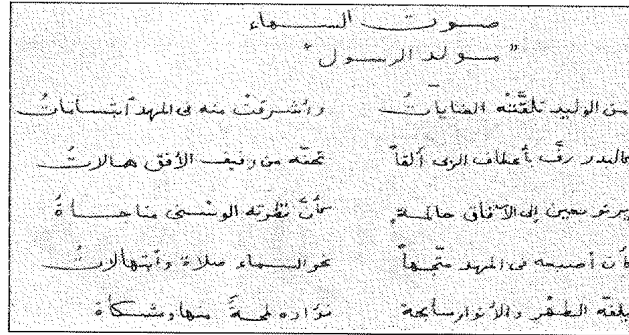 صوت السماء
"مولد الرسول"
من الوليد تلقَّته العناياتُ وأشرقتْ منه فى المهد ابتساماتُ
كالبدر رفَّ بأعطاف الربى ألقاً تحفّه من رفيف الأفق هالاتُ
يرنو بعين إلى الآفاق حالمةٍ كأنّ نظرته الوسنى مناجاةُ
كأن أصبعه فى المهد متّجهاً نحو السماء صلاة وابتهالاتُ
يلفّه الطهر والأنوار سابحة فؤاده لمحةٌ منها ومشكاة